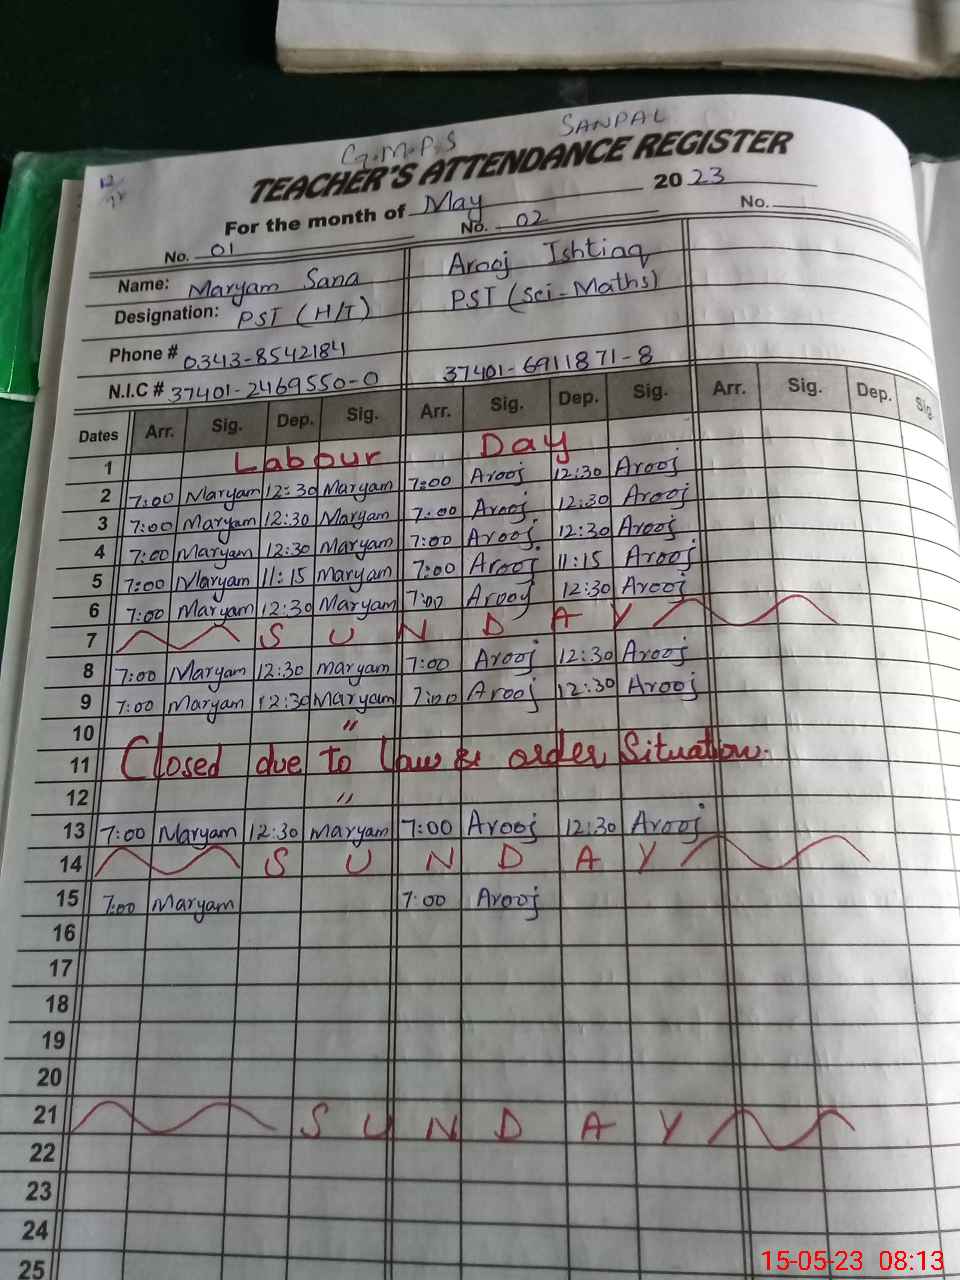 G.M.P.S SANPAL
TEACHER'S ATTENDANCE REGISTER
For the month of May 2023
No. 01 No. 02 No.
Name: Maryam Sana Arooj Ishtiaq
Designation: PST (H/T) PST (Sci-Maths)
Phone # 0343-8542184
N.I.C # 37401-2469550-0 37401-6911871-8
Dates Arr. Sig. Dep. Sig. Arr. Sig. Dep. Sig. Arr. Sig. Dep. Sig
1 Labour Day
2 7:00 Maryam 12:30 Maryam 7:00 Arooj 12:30 Arooj
3 7:00 Maryam 12:30 Maryam 7:00 Arooj 12:30 Arooj
4 7:00 Maryam 12:30 Maryam 7:00 Arooj 12:30 Arooj
5 7:00 Maryam 11:15 Maryam 7:00 Arooj 11:15 Arooj
6 7:00 Maryam 12:30 Maryam 7:00 Arooj 12:30 Arooj
7 SUNDAY
8 7:00 Maryam 12:30 Maryam 7:00 Arooj 12:30 Arooj
9 7:00 Maryam 12:30 Maryam 7:00 Arooj 12:30 Arooj
10 "
11 Closed due to Law & order Situation.
12 "
13 7:00 Maryam 12:30 Maryam 7:00 Arooj 12:30 Arooj
14 SUNDAY
15 7:00 Maryam 7:00 Arooj
16
17
18
19
20
21 SUNDAY
22
23
24
25
15-05-23 08:13